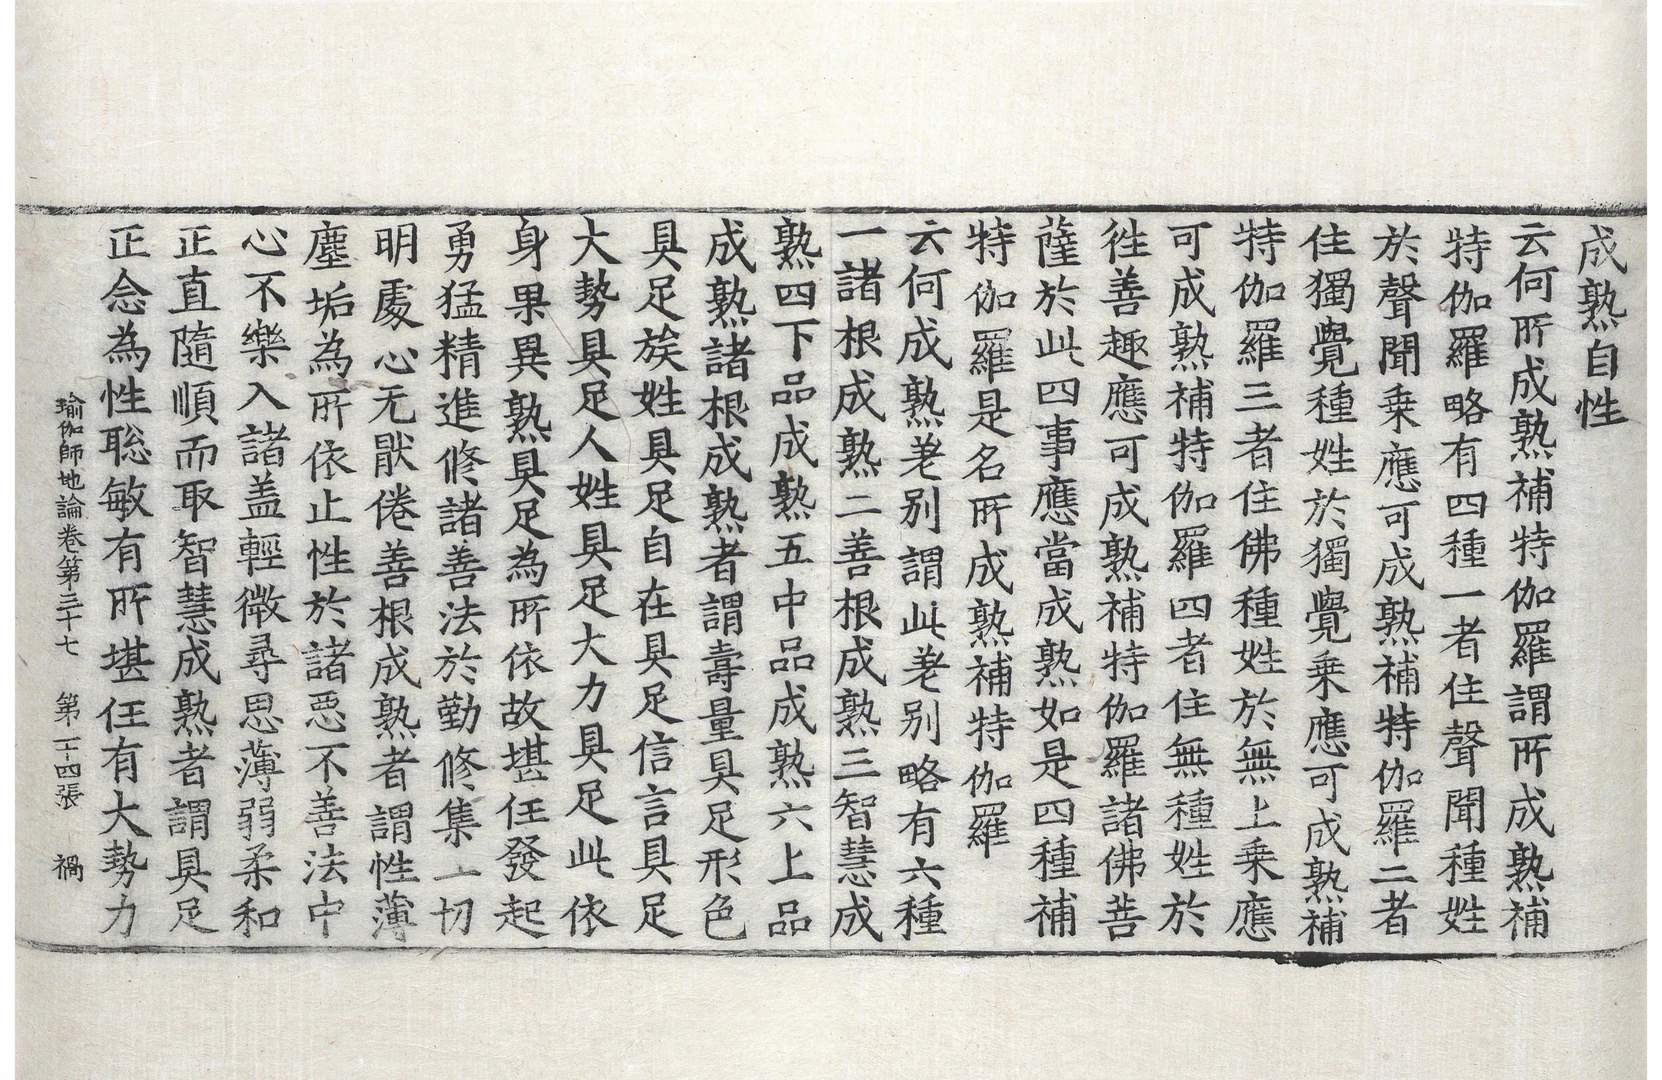 成熟自性
云何所成熟補特伽羅謂所成熟補
特伽羅略有四種一者住聲聞種姓
於聲聞乗應可成熟補特伽羅二者
住獨覺種姓於獨覺乗應可成熟補
特伽羅三者住佛種姓於無上乗應
可成熟補特伽羅四者住無種姓於
徃善趣應可成熟補特伽羅諸佛菩
薩於此四事應當成熟如是四種補
特伽羅是名所成熟補特伽羅
云何成熟差別謂此差別略有六種
一諸根成熟二善根成熟三智慧成
熟四下品成熟五中品成熟六上品
成熟諸根成熟者謂壽量具足形色
具足族姓具足自在具足信言具足
大勢具足人姓具足大力具足此依
身果異熟具足為所依故堪任發起
勇猛精進修諸善法於勤修集一切
明處心无猒倦善根成熟者謂性薄
塵垢為所依止性於諸惡不善法中
心不樂入諸盖輕微尋思薄弱柔和
正直隨順而取智慧成熟者謂具足
正念為性聡敏有所堪任有大勢力
瑜伽師地論卷第三十七 第二十四張 禍